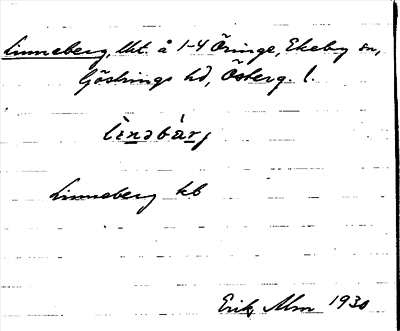 Linneberg, lht. å 1-4 Öringe, Ekeby sn,
Göstrings hd, Österg. l.
Linneberg kb
Erik Alm 1930